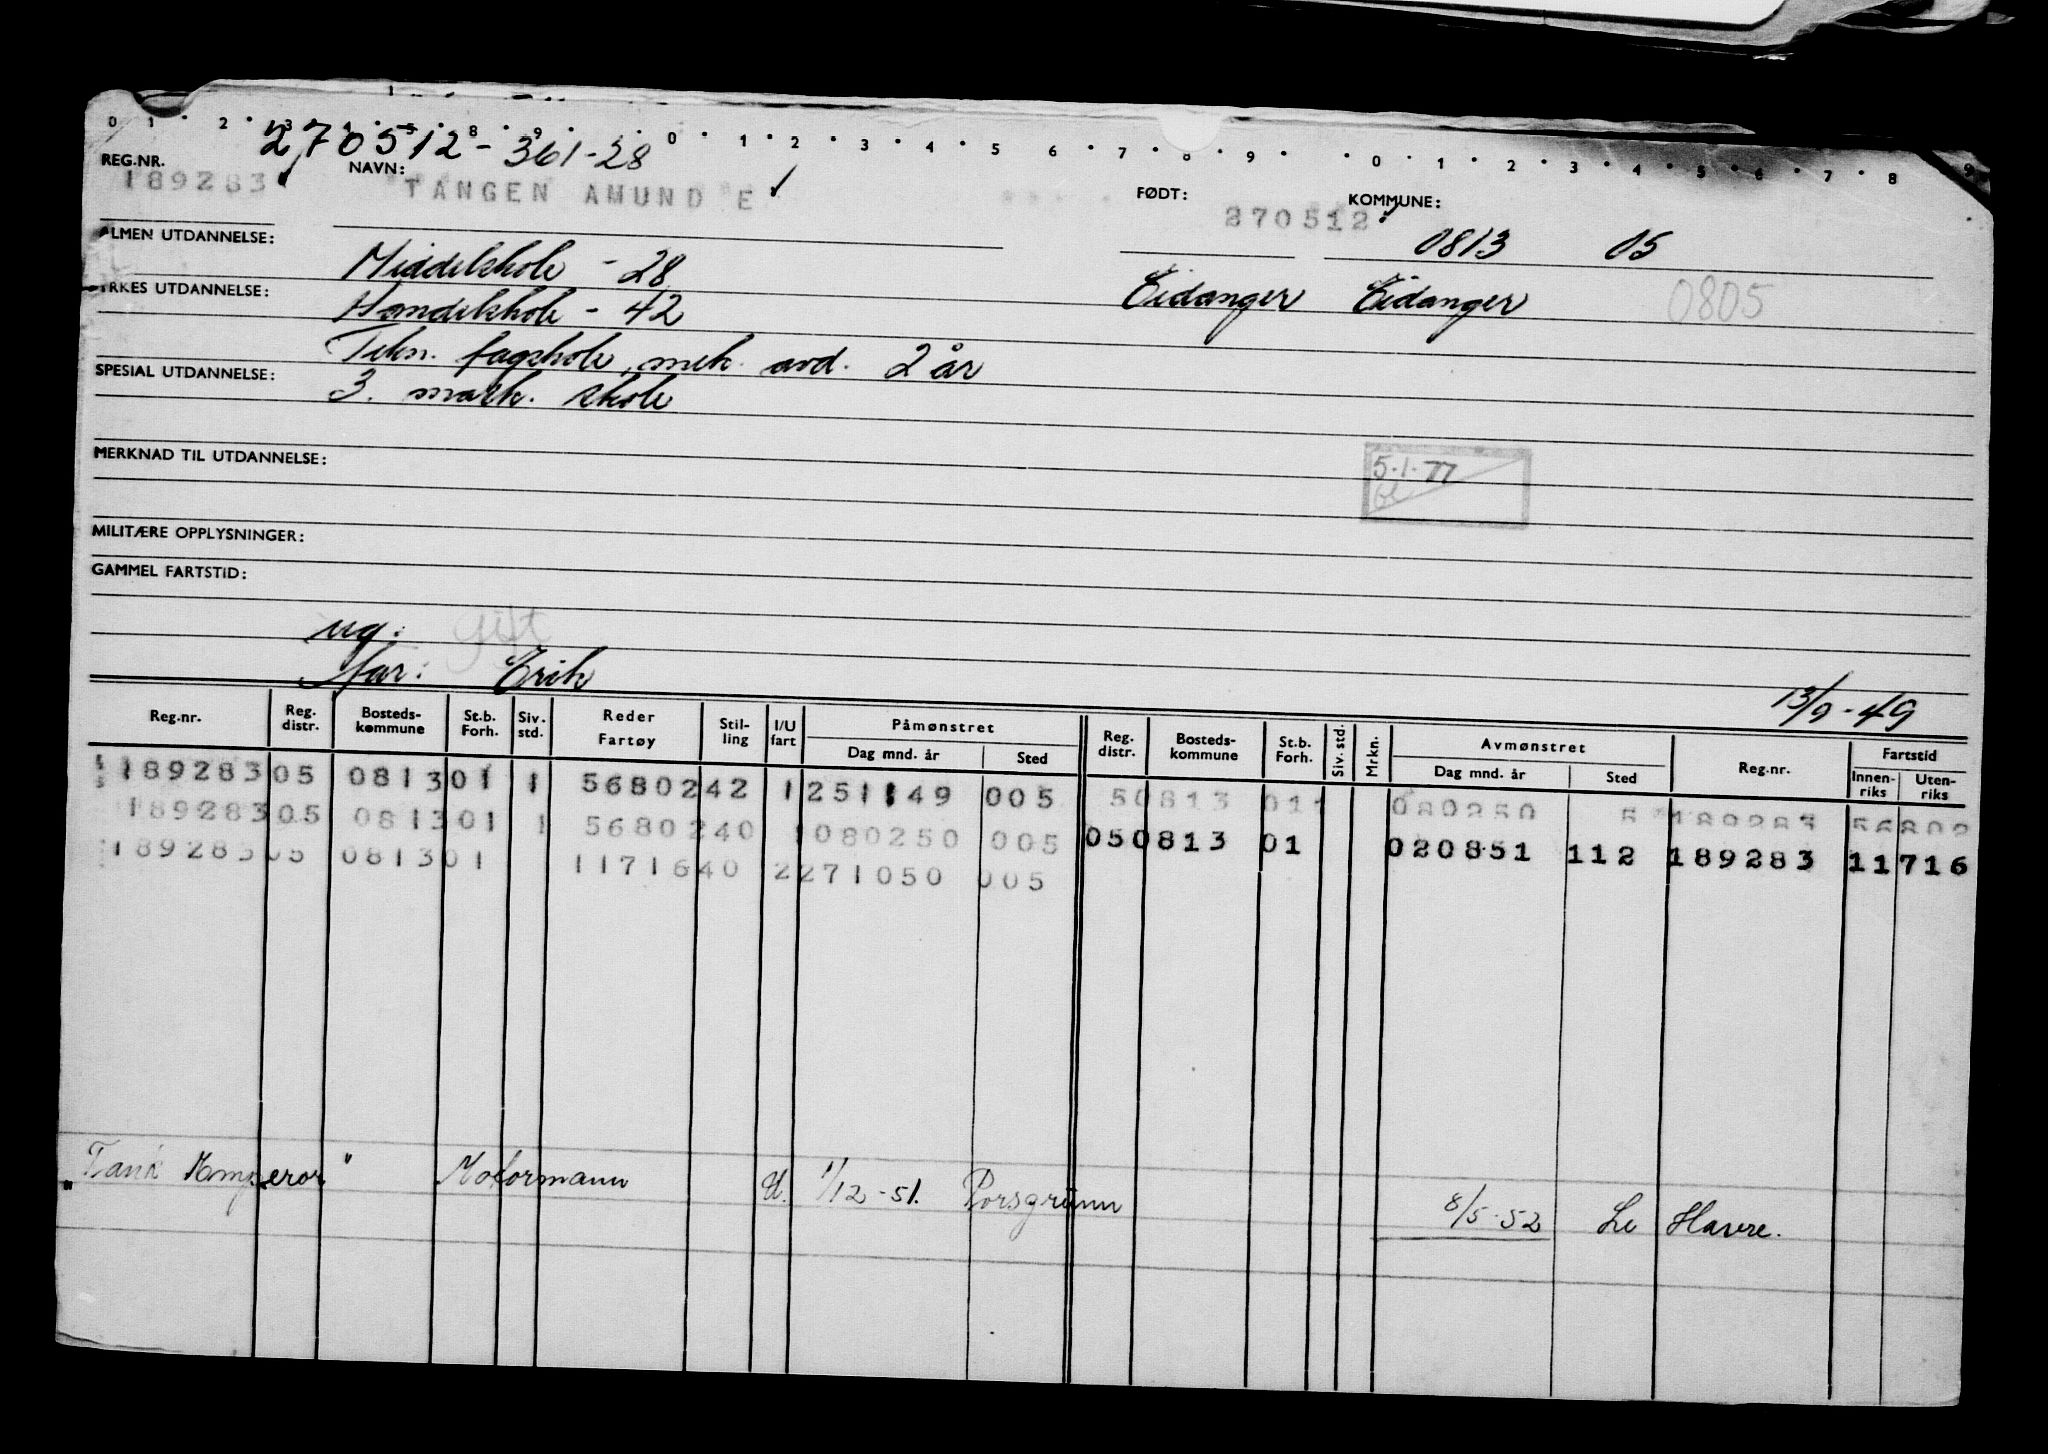 0 1 2 3 8 9 0 1 2 3 4 5 6 7 8 9 0 1 2 3 4 5 6 7 8 9
270512-361-28
REG.NR. NAVN: FØDT: KOMMUNE:
189283 TANGEN AMUND E 270512 0813 05
ALMEN UTDANNELSE: Middelskole - 28
YRKES UTDANNELSE: Handelskole - 42 Eidanger Eidanger 0805
Tekn. fagskole, mek. avd. 2 år
SPESIAL UTDANNELSE: 3. mask. skole
MERKNAD TIL UTDANNELSE: 5.1.77
MILITÆRE OPPLYSNINGER:
GAMMEL FARTSTID:
ug. gift
Far: Erik
13/9-49
Reg.nr. Reg. distr. Bosteds-kommune St.b. Forh. Siv. std. Reder Fartøy Stil-ling I/U fart Påmønstret Dag mnd. år Sted Reg. distr. Bosteds-kommune St.b. Forh. Siv. std. Mrkn. Avmønstret Dag mnd. år Sted Reg.nr. Fartstid Innen-riks Uten-riks
189283 05 0813 01 1 56802 42 1 251149 005 5 0813 011 080250 5 189283 56802
189283 05 0813 01 1 56802 40 1 080250 005 05 0813 01 020851 112 189283 11716
189283 05 0813 01 11716 40 2 271050 005
"Tank Emperor" Motormann U. 1/12-51. Porsgrunn 8/5-52 Le Havre.